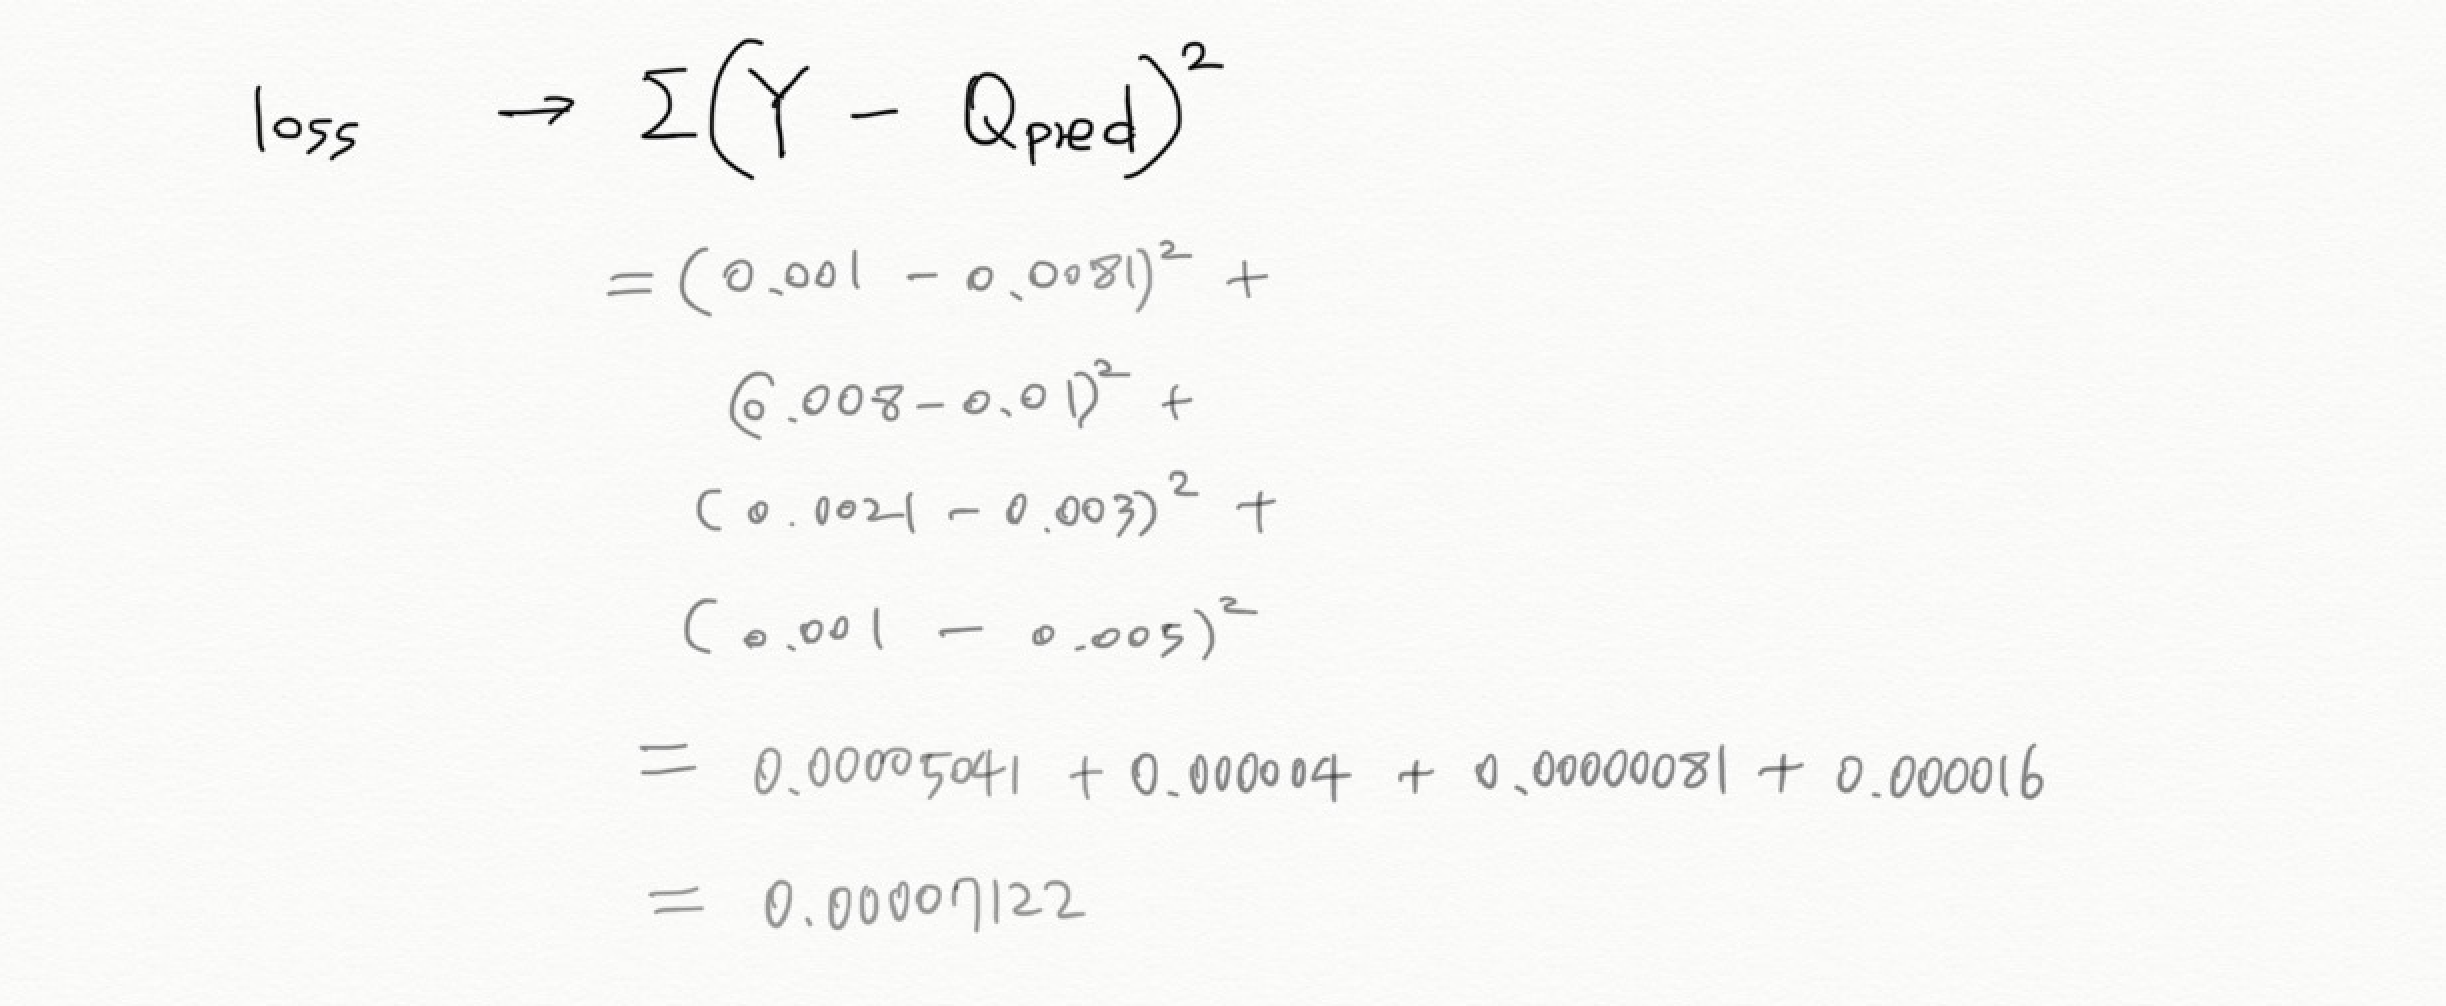 loss → Σ(Y - Qpred)²
= (0.001 - 0.0081)² +
(0.008 - 0.01)² +
(0.0021 - 0.003)² +
(0.001 - 0.005)²
= 0.00005041 + 0.000004 + 0.00000081 + 0.000016
= 0.00007122